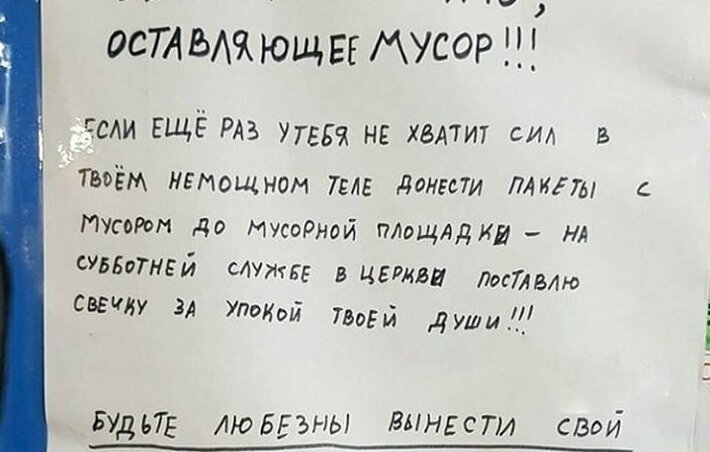 ОСТАВЛЯЮЩЕЕ МУСОР!!!
ЕСЛИ ЕЩЁ РАЗ УТЕБЯ НЕ ХВАТИТ СИЛ В
ТВОЁМ НЕМОЩНОМ ТЕЛЕ ДОНЕСТИ ПАКЕТЫ С
МУСОРОМ ДО МУСОРНОЙ ПЛОЩАДКИ – НА
СУББОТНЕЙ СЛУЖБЕ В ЦЕРКВИ ПОСТАВЛЮ
СВЕЧКУ ЗА УПОКОЙ ТВОЕЙ ДУШИ!!!
БУДЬТЕ ЛЮБЕЗНЫ ВЫНЕСТИ СВОЙ